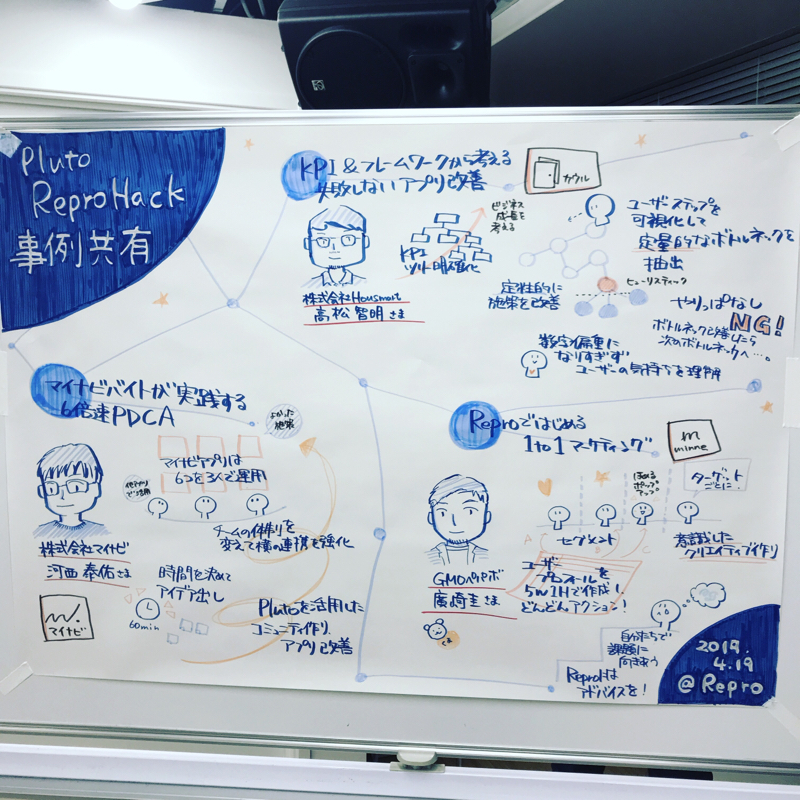 Pluto
ReproHack
事例共有
KPI&フレームワークから考える
失敗しないアプリ改善
カウル
株式会社Housmart
高松 智明さま
KPI
ツリー明確化
ビジネス
成長を
考える
ユーザステップを
可視化して
定量的なボトルネックを
抽出
定性的に
施策を改善
ヒューリスティック
やりっぱなし
NG!
ボトルネック改善したら
次のボトルネックへ…。
数字偏重に
なりすぎず
ユーザーの気持ちを理解
マイナビバイトが実践する
6倍速PDCA
よかった
施策
マイナビアプリは
6つを3人で運用
他アプリ
で活用
株式会社マイナビ
河西 泰佑さま
マイナビ
チームの体制を
変えて横の連携を強化
時間を決めて
アイデア出し
60min
Plutoを活用した
コミュニティ作り、
アプリ改善
Reproではじめる
1to1マーケティング
minne
GMOペパボ
廣崎圭さま
ほめる
ポップ
アップ
ターゲット
ごとに
セグメント
意識した
クリエイティブ作り
ユーザー
プロフィールを
5W1Hで作成!
どんどんアクション!
くま
自分たちで
課題に
向きあう
Reproは
アドバイスを!
2019.
4.19
@Repro